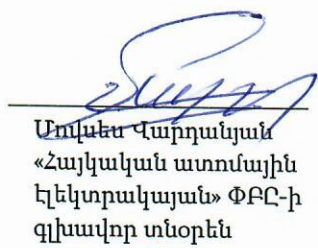 Մովսես Վարդանյան
«Հայկական ատոմային
էլեկտրակայան» ՓԲԸ-ի
գլխավոր տնօրեն